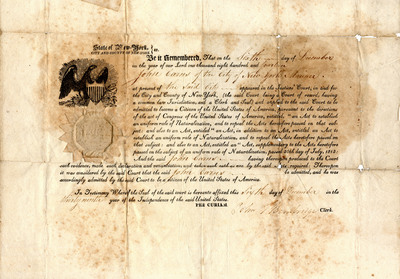 State of New-York,
CITY AND COUNTY OF NEW-YORK
Be it Remembered, That on the Sixth day of
in the year of our Lord one thousand eight hundred and
John Cairns of the City of New York
at present of appeared in the Justices' Court, or that for
the City and County of New-York, (the said Court being a Court of record, having
a common law Jurisdiction, and a Clerk and Seal) and applied to the said Court to be
admitted to become a Citizen of the United States of America, pursuant to the directions
of the act of Congress of the United States of America, entitled "An Act to establish
an uniform rule of Naturalization, and to repeal the Acts heretofore passed on that sub-
ject: and also to an Act, entitled "an Act in addition to an Act, entitled an Act to
establish an uniform rule of Naturalization, and to repeal the Acts heretofore passed on
that subject: and also to an Act, entitled an "Act, supplementary to the Acts heretofore
passed on the subject of an uniform rule of Naturalization, passed 30th day of July, 1813.
And the said John Cairns having thereupon produced to the Court
such evidence, made such declaration and renunciation and taken such oaths as are by the said acts required, Thereupon
it was considered by the said Court that the said John Cairns be admitted, and he was
accordingly admitted by the said Court to be a citizen of the United States of America.
In Testimony Whereof the Seal of the said court is hereunto affixed this Sixth day of in the
year of the Independence of the said United States.
PER CURIAM.
Clerk.